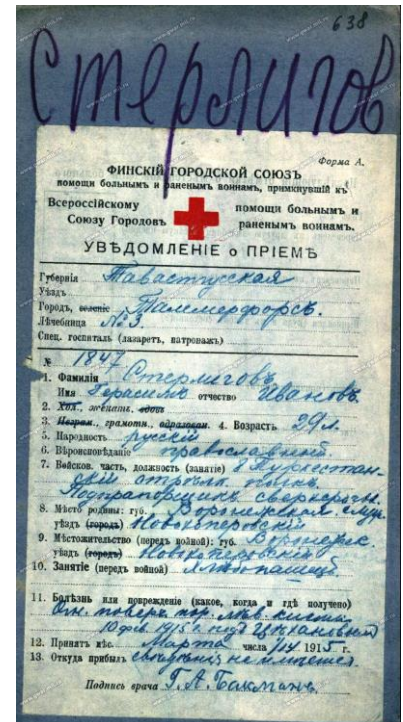 638
Стерлигов
Форма А.
ФИНСКІЙ ГОРОДСКОЙ СОЮЗЪ
помощи больнымъ и раненымъ воинамъ, примкнувшій къ
Всероссійскому помощи больнымъ и
Союзу Городовъ раненымъ воинамъ.
УВѢДОМЛЕНІЕ о ПРІЕМѢ
Губернія Тавастгусская
Уѣздъ
Городъ, селеніе Таммерфорсъ.
Лѣчебница № 3.
Спец. госпиталь (лазаретъ, патронажъ)
№ 1847
1. Фамилія Стерлиговъ
Имя Герасимъ отчество Ивановъ.
2. Хол., женатъ, вдовъ
3. Неграм., грамотн., образован. 4. Возрастъ 29 л.
5. Народность русскій
6. Вѣроисповѣданіе православный.
7. Войсков. часть, должность (занятіе) 8 Туркестан-
скій стрѣлк. полкъ.
Подпрапорщикъ сверхсрочн.
8. Мѣсто родины: губ. Воронежская
уѣздъ (городъ) Новохоперовскій
9. Мѣстожительство (передъ войной): губ. Воронежск.
уѣздъ (городъ) Новохоперовскій
10. Занятіе (передъ войной)
11. Болѣзнь или поврежденіе (какое, когда и гдѣ получено)
Ог. лѣв. кисти
10 фев. 1915 г. подъ
12. Принятъ мѣс. Марта числа 1/14 1915 г.
13. Откуда прибылъ свѣдѣній не имѣется.
Подпись врача Г. А. Бакманъ.